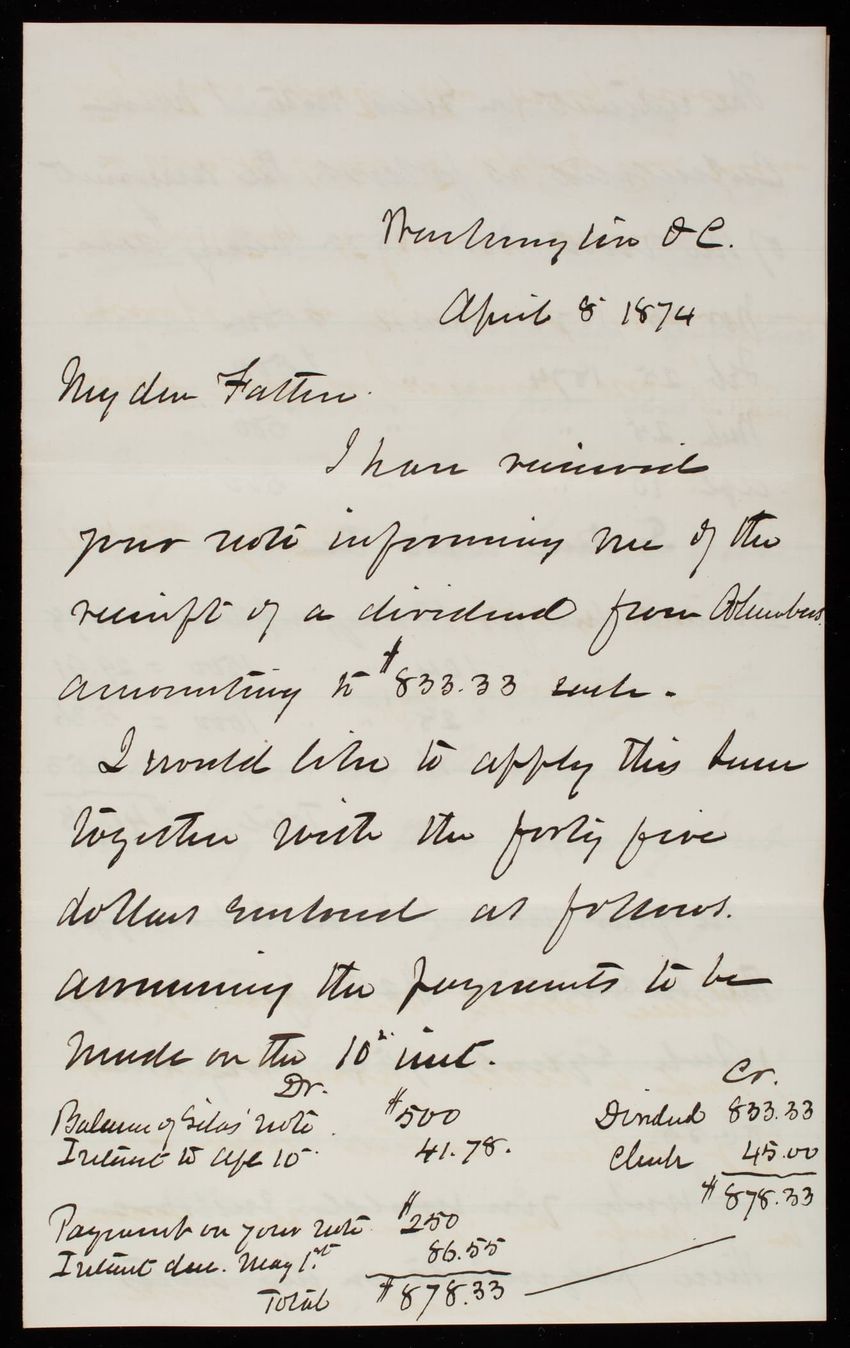 Washington D C.
April 8 1874
My dear Father.
I have received
your note informing me of the
receipt of a dividend from Columbus,
amounting to $833.33 each.
I would like to apply this sum
together with the forty five
dollars enclosed as follows.
assuming the payments to be
made on the 10" inst.
Dr. Cr.
Balance of Silas' note. $500 Dividend 833.33
Interest to Apl 10" 41.78. Check 45.00
$878.33
Payment on your note $250
Interest due. May 1.st 86.55
Total $878.33